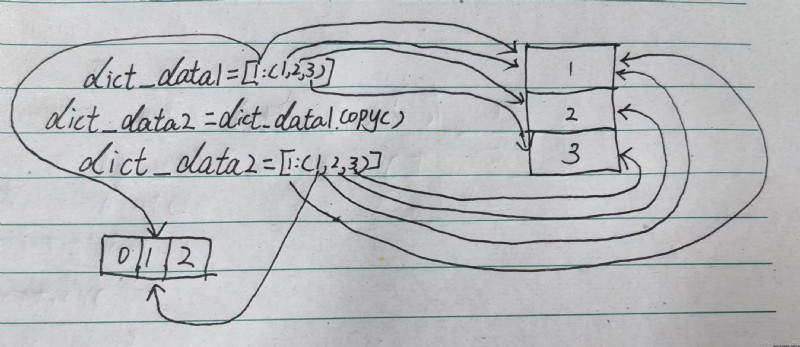 dict_data1=[1:(1,2,3)]
dict_data2=dict_data1.copy()
dict_data2=[1:(1,2,3)]
1
2
3
0 1 2